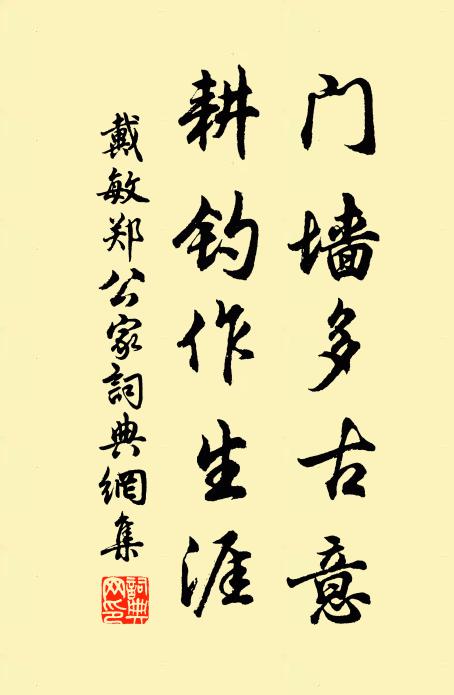 门墙多古意
耕钓作生涯
戴敏郑公家詞典網集
詞典网印